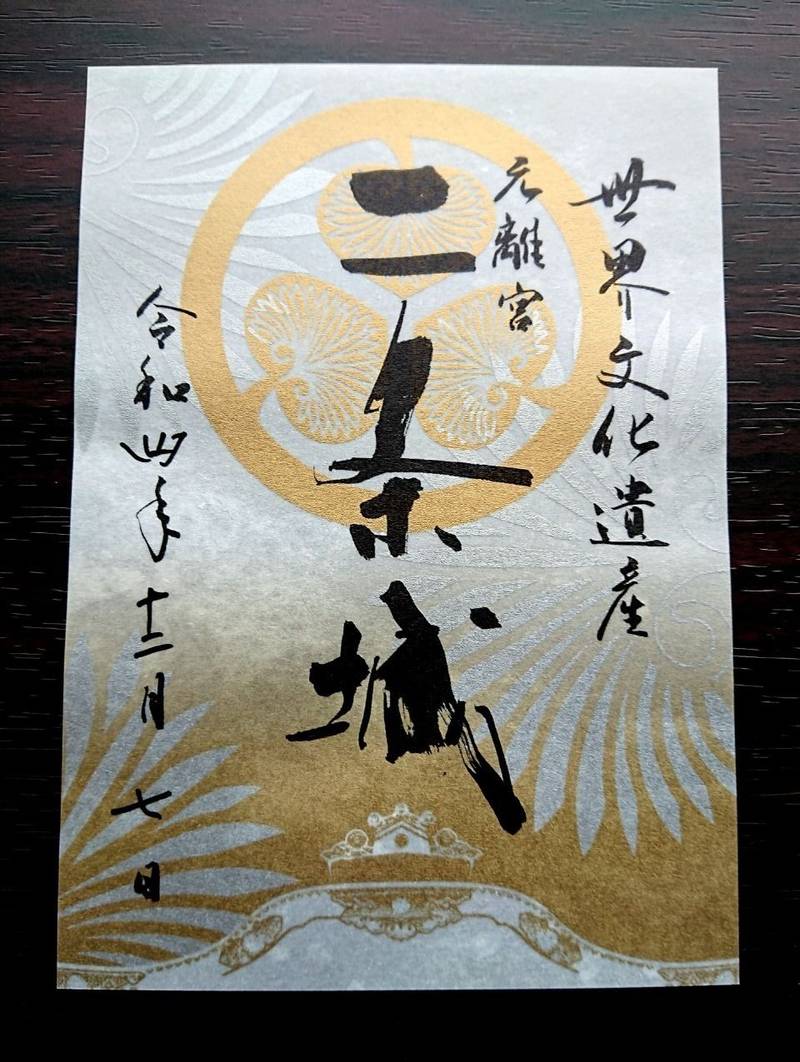 世界文化遺産
元離宮
二条城
令和四年十二月七日